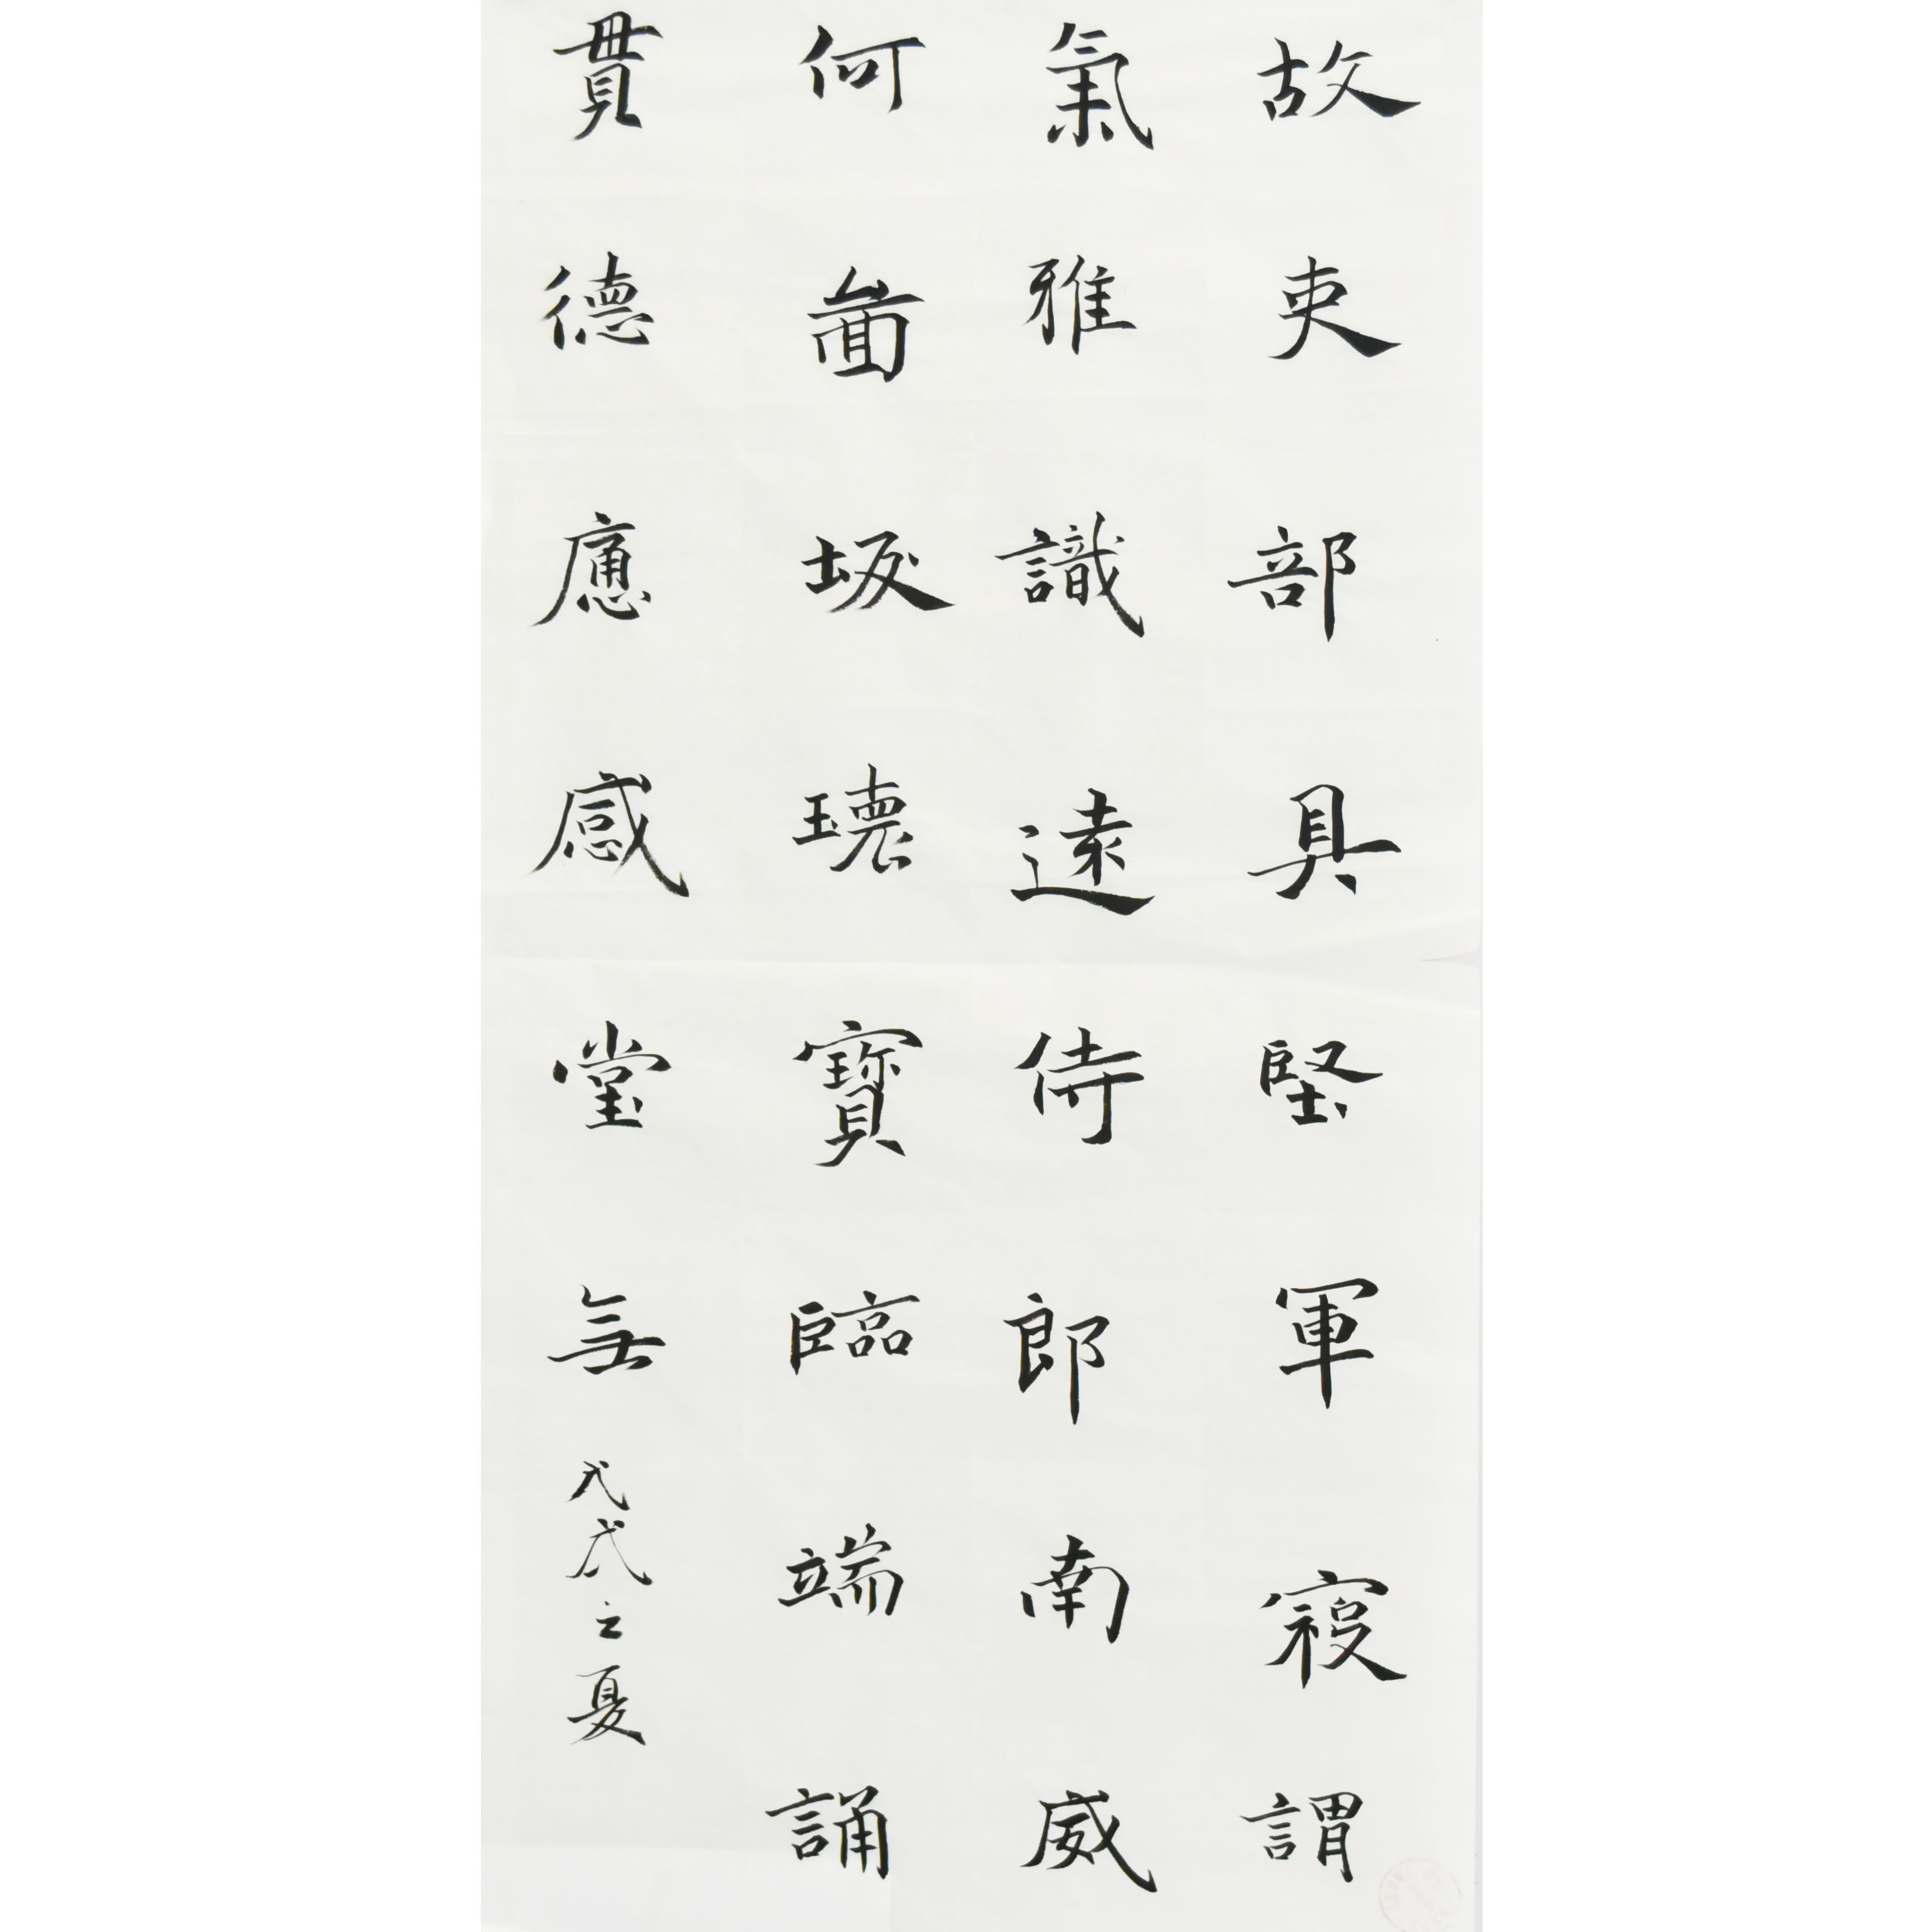 故吏部具堅軍寢謂
氣雅識遠侍郎南威
何啚坂瓌寶臨端誦
貫德應感堂無
戊戌之夏